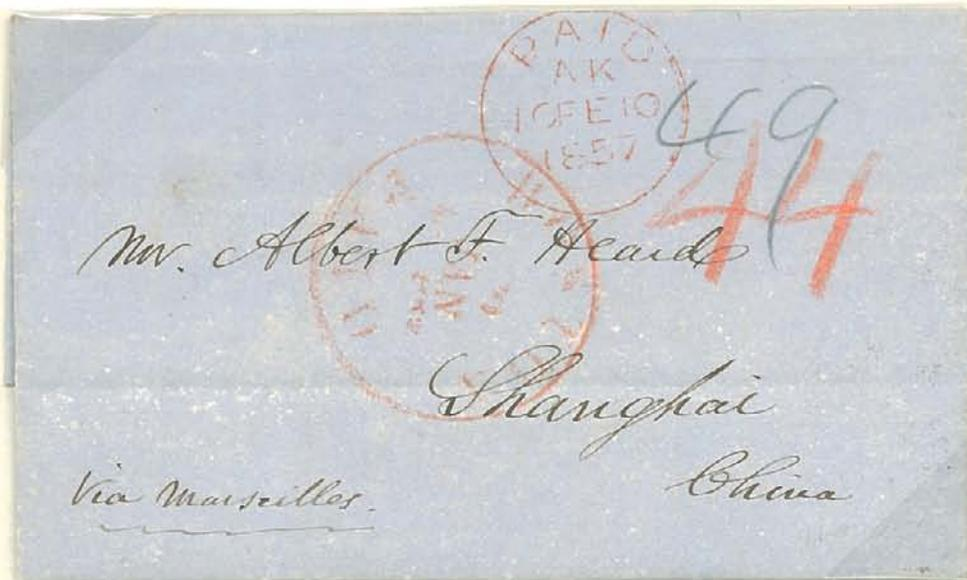 PAID
AK
10FE10
1857
49
44
Mr. Albert F. Heard
Shanghai
China
Via Marseilles.